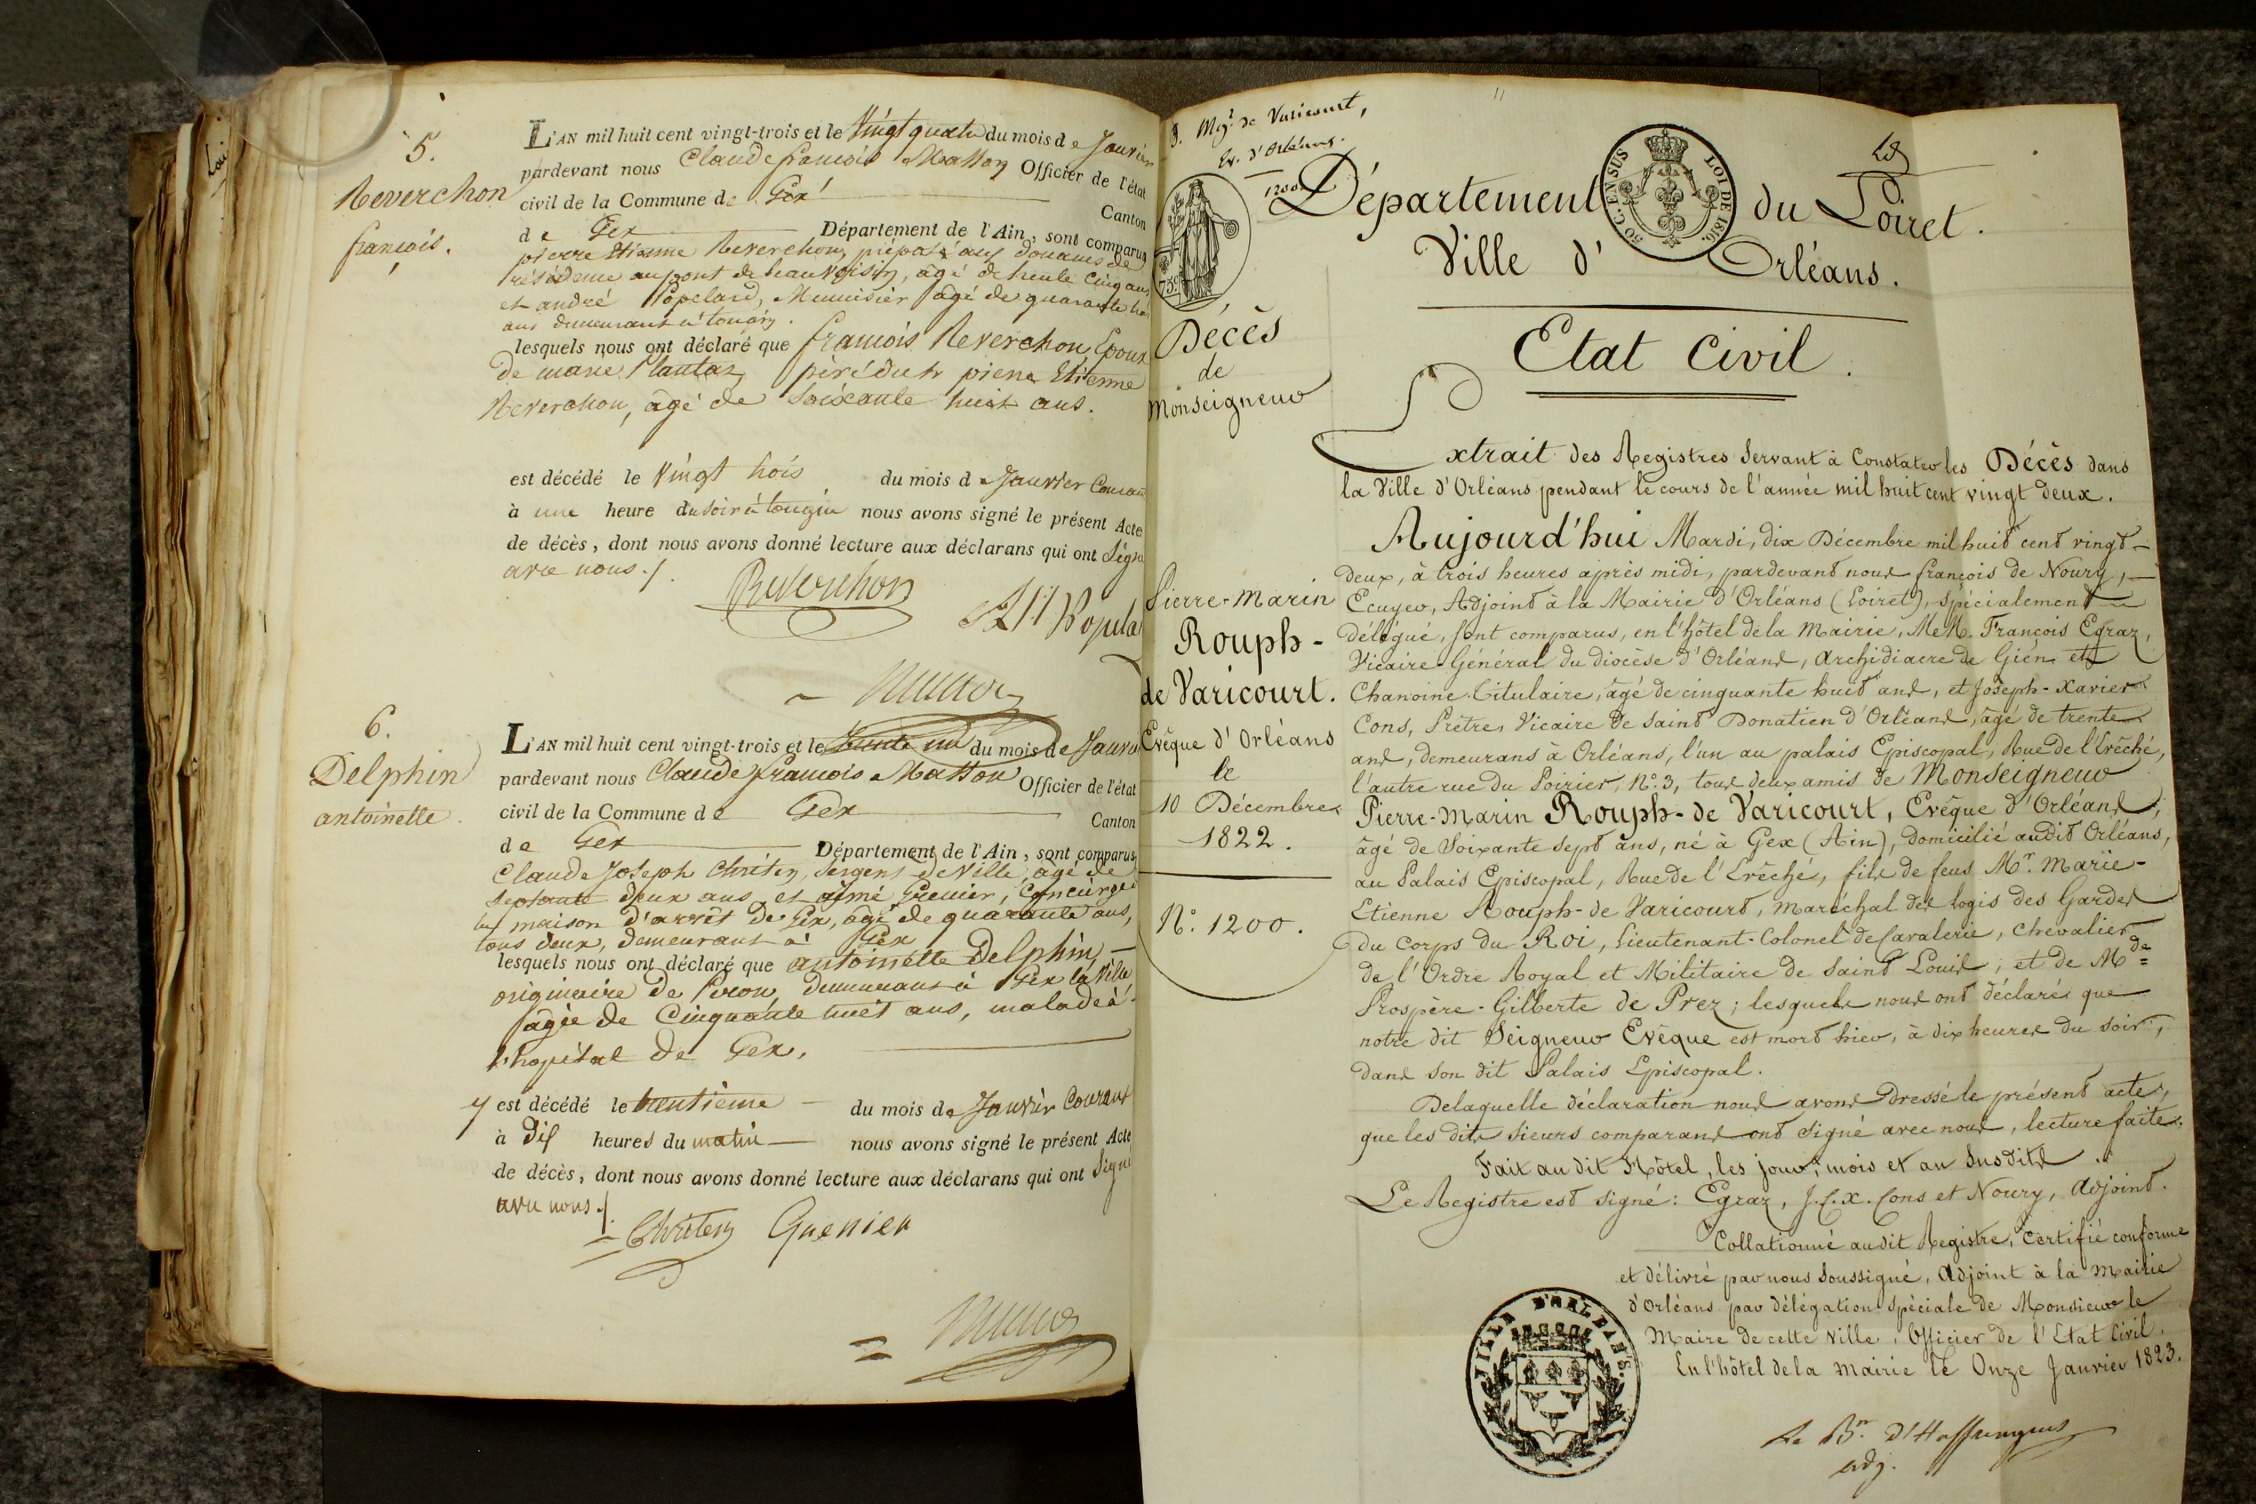 5.
Reverchon
françois.
L'AN mil huit cent vingt-trois et le Vingt quatre du mois de Janvier
pardevant nous Claude françois Matton Officier de l'état
civil de la Commune de Gex
Canton
de Gex Département de l'Ain, sont comparus
pierre Etienne Reverchon, préposé aux douanes de
résidence au pont de beauvoisin, âgé de trente cinq ans,
et andré Popelard, Menuisier âgé de quarante trois
ans demeurant à tougin.
lesquels nous ont déclaré que françois Reverchon, Epoux
de marie Plantaz, père dudt pierre Etienne
Reverchon, âgé de soixante huit ans.
est décédé le Vingt trois du mois de Janvier Courant
à une heure du soir à tougin nous avons signé le présent Acte
de décès, dont nous avons donné lecture aux déclarans qui ont signé
avec nous./.
Reverchon
6.
Delphin
antoinette.
L'AN mil huit cent vingt-trois et le trente un du mois de Janvier
pardevant nous Claude françois Matton Officier de l'état
civil de la Commune de Gex
Canton
de Gex Département de l'Ain, sont comparus
Claude Joseph Chriten, Sergent de Ville, âgé de
septante deux ans, et aimé Grenier, Concierge de
la maison d'arrêt de Gex, âgé de quarante ans,
tous deux, demeurant à Gex
lesquels nous ont déclaré que antoinette Delphin,
originaire de Peron, demeurant à Gex la Ville
âgée de Cinquante huit ans, malade à
l'hopital de Gex.
y est décédé le trentieme du mois de Janvier Courant
à dix heures du matin nous avons signé le présent Acte
de décès, dont nous avons donné lecture aux déclarans qui ont signé
avec nous./.
Chriten Grenier
3. Mgr. de Varicourt,
Ev. d'Orléans.
1200.
75 c
50 C. EN SUS
LOI DE 1816.
Département du Loiret.
Ville d'Orléans.
Etat Civil.
Décès
de
Monseigneur
Pierre-Marin
Rouph-
de Varicourt.
Evêque d'Orléans
le
10 Décembre
1822.
N°. 1200.
Extrait des Registres Servant à Constater les Décès dans
la Ville d'Orléans pendant le cours de l'année mil huit cent vingt deux.
Aujourd'hui Mardi, dix Décembre mil huit cent vingt-
deux, à trois heures après midi, pardevant nous françois de Noury,
Ecuyer, Adjoint à la Mairie d'Orléans (Loiret), spécialement
délégué, sont comparus, en l'hôtel de la Mairie, MeM. François Egraz,
Vicaire-Général du diocèse d'Orléans, Archidiacre de Gien et
Chanoine Titulaire, âgé de cinquante huit ans, et Joseph-Xavier
Cons, Prêtre, Vicaire de Saint Donatien d'Orléans, âgé de trente
ans, demeurans à Orléans, l'un au palais Episcopal, Rue de l'Evêché,
l'autre rue du Poirier, N°. 3, tous deux amis de Monseigneur
Pierre-Marin Rouph-de Varicourt, Evêque d'Orléans,
âgé de Soixante sept ans, né à Gex (Ain), domicilié audit Orléans,
au Palais Episcopal, Rue de l'Evêché, fils de feus Mr. Marie-
Etienne Rouph-de Varicourt, Maréchal des logis des Gardes
du Corps du Roi, Lieutenant-Colonel de Cavalerie, Chevalier
de l'Ordre Royal et Militaire de Saint Louis; et de Mde
Prospère-Gilberte de Prez; lesquels nous ont déclaré que
notre dit Seigneur Evêque est mort hier, à dix heures du soir,
dans son dit Palais Episcopal.
Delaquelle déclaration nous avons Dressé le présent acte,
que les dits sieurs comparans ont signé avec nous, lecture faite.
Fait au dit Hôtel, les jour, mois et an susdits.
Le Registre est signé: Egraz, J.f.x. Cons et Noury, Adjoint.
Collationné audit Registre, Certifié conforme
et délivré par nous Soussigné, Adjoint à la Mairie
d'Orléans par délégation Spéciale de Monsieur le
Maire de cette Ville, Officier de l'Etat Civil.
En l'hôtel de la Mairie le Onze Janvier 1823.
VILLE D'ORLEANS.
Le Bn. d'Haffrengues
adj.